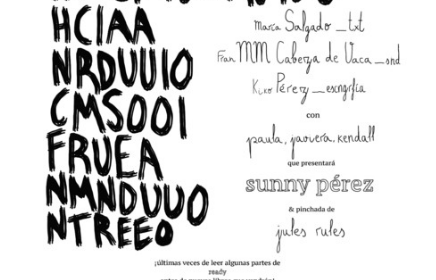 HCIAA
NRDUUIO
CMSOOI
FRUEA
NMNDUUO
NTREEO
maría Salgado _txt
Fran MM Cabeza de Vaca _snd
Kiko Pérez _escngrfía
con
paula, javiera, kendall
que presentará
sunny pérez
& pinchada de
jules rules
¡últimas veces de leer algunas partes de
ready